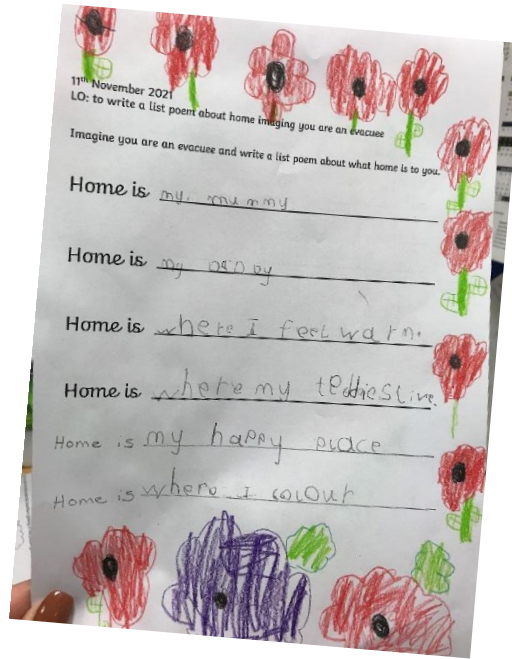 11th November 2021
LO: to write a list poem about home imaging you are an evacuee
Imagine you are an evacuee and write a list poem about what home is to you.
Home is my mummy
Home is my
Home is where I feel warm.
Home is where my teddies live.
Home is my happy place
Home is where I colour